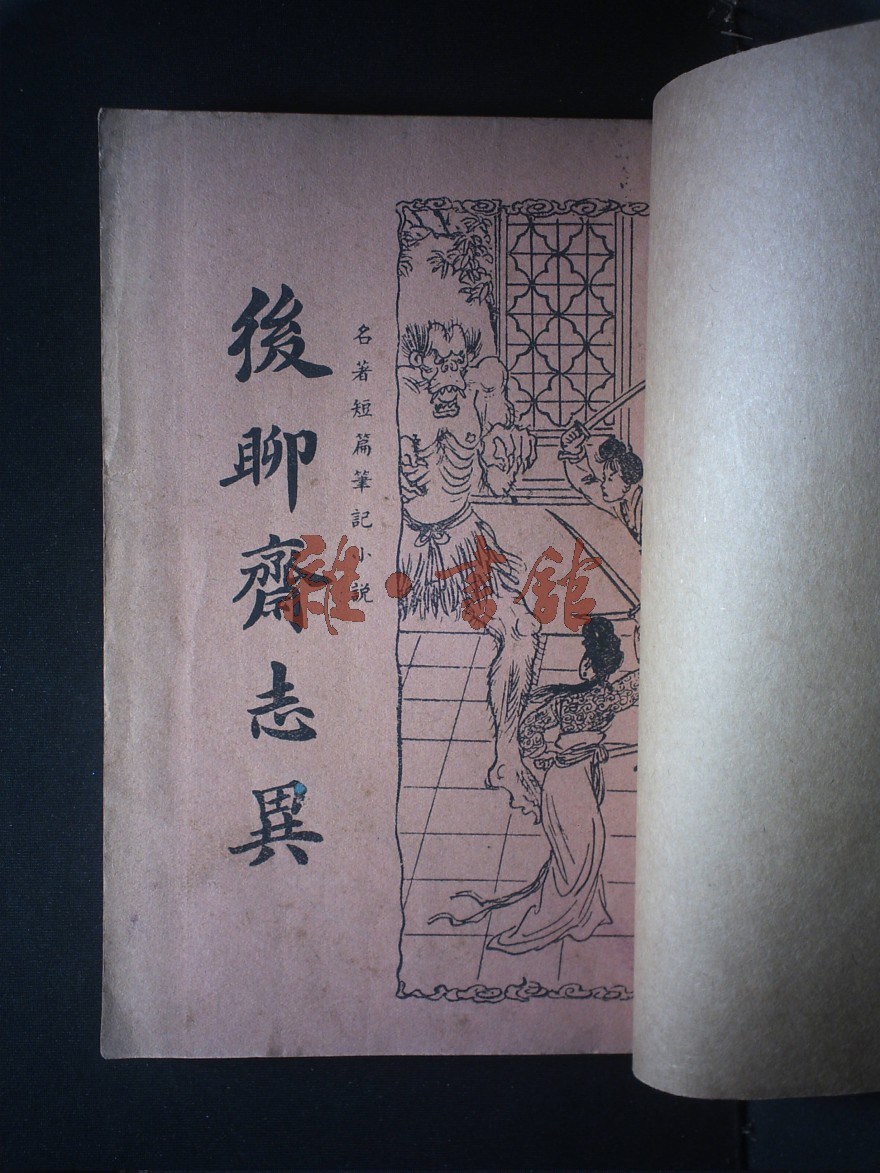 名著短篇筆記小説
後聊齋志異
雜·書館